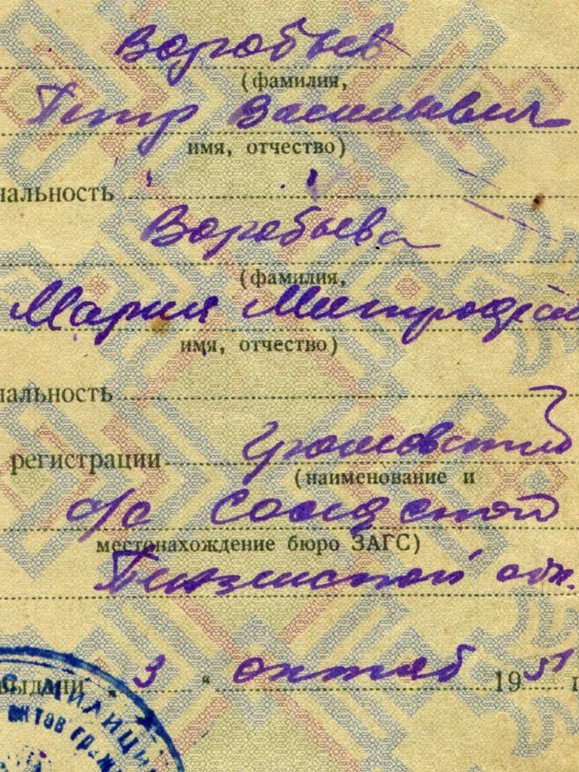 Воробьев
(фамилия,
Петр Васильевич
имя, отчество)
нальность
Воробьева
(фамилия,
Мария Митрофан
имя, отчество)
нальность
регистрации
(наименование и
с/с
местонахождение бюро ЗАГС)
Пензенской обл.
выдачи „ 3 “ октяб 1951 г
МИЛИЦИ
актов граж